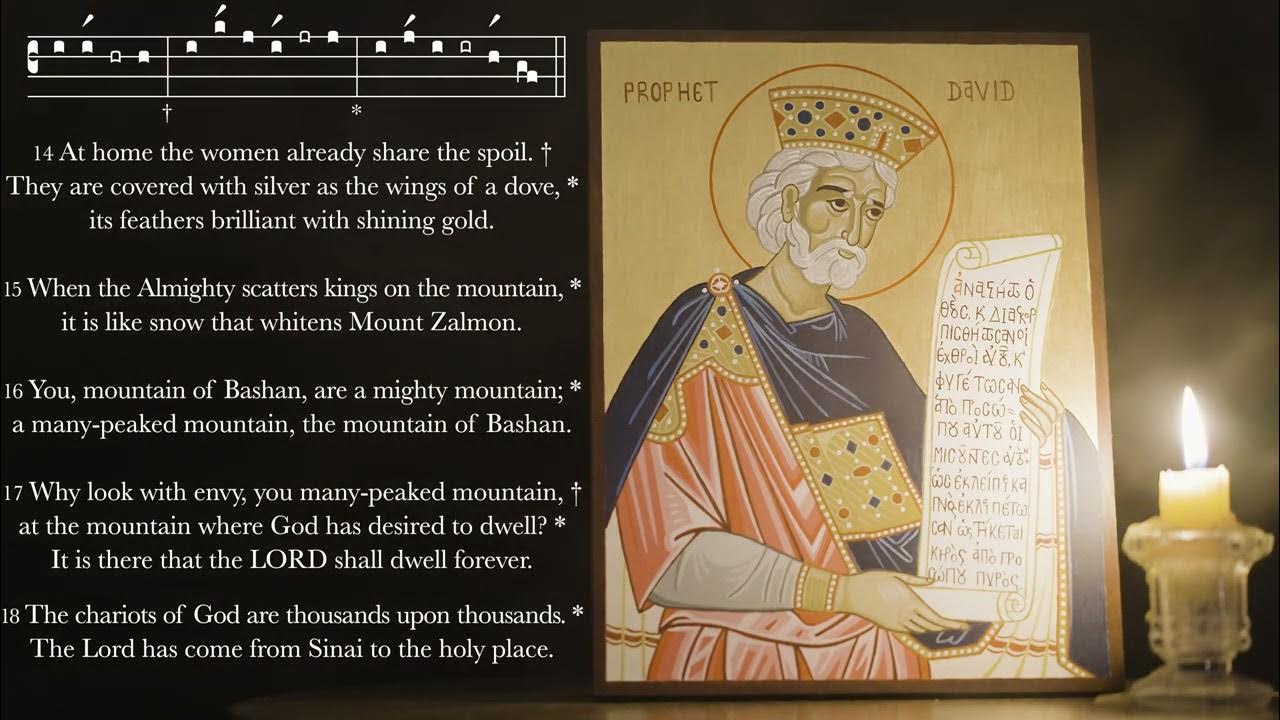 †
*
14 At home the women already share the spoil. †
They are covered with silver as the wings of a dove, *
its feathers brilliant with shining gold.
15 When the Almighty scatters kings on the mountain, *
it is like snow that whitens Mount Zalmon.
16 You, mountain of Bashan, are a mighty mountain; *
a many-peaked mountain, the mountain of Bashan.
17 Why look with envy, you many-peaked mountain, †
at the mountain where God has desired to dwell? *
It is there that the LORD shall dwell forever.
18 The chariots of God are thousands upon thousands. *
The Lord has come from Sinai to the holy place.
PROPHET DaVID
ἀΝαϚΉΤω Ὁ
ΘΕȢϹ, Κ ΔΙαϹΚΟΡ
ΠΙϹΘΉΤωϹαΝ ΟἹ
ἘΧΘΡΟῚ αὐΤȢ͂, Κ
ΦΥΓΈΤωϹαΝ
ἀΠῸ ΠΡΟϹώ=
ΠΟΥ αὐΤȢ͂ ΟἹ
ΜΙϹȢ͂ΝΤΕϹ
ὡϹ ἘΚΛΕΊΠΕΙ Κα
ϹαΝ ὡϹ ΤΉΚΕΤαΙ
ΚΗΡῸϹ ἀΠῸ ΠΡΟ
ϹώΠȢ ΠΥΡΌϹ